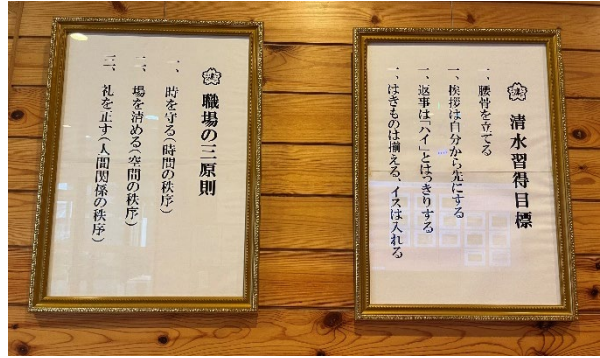 清水習得目標
一、腰骨を立てる
一、挨拶は自分から先にする
一、返事は「ハイ」とはっきりする
一、はきものは揃える、イスは入れる
職場の三原則
一、時を守る(時間の秩序)
二、場を清める(空間の秩序)
三、礼を正す(人間関係の秩序)